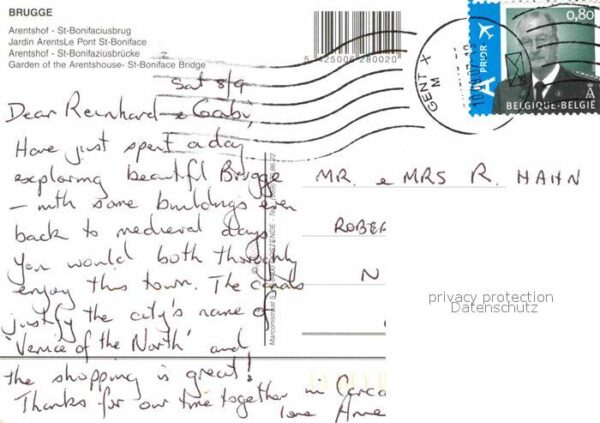 BRUGGE
Arentshof - St-Bonifaciusbrug
Jardin ArentsLe Pont St-Boniface
Arentshof - St-Bonifaziusbrücke
Garden of the Arentshouse- St-Boniface Bridge
5 425006 280020
A PRIOR
0,80
BELGIQUE-BELGIË
GENT X
M
Sat 8/9
Dear Reinhard & Gabi,
Have just spent a day
exploring beautiful Brugge
– with some buildings even
back to medieval days
You would both thoroughly
enjoy this town. The canals
justify the city's name of
'Venice of the North' and
the shopping is great!
Thanks for our time together in
love Anne
MR. & MRS R. HAHN
ROBE
N
privacy protection
Datenschutz